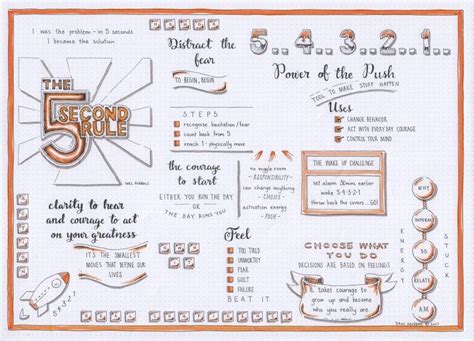 I was the problem - in 5 seconds
I became the solution
THE
5
SECOND
RULE
MEL ROBBINS
clarity to hear
and courage to act
on your greatness
IT'S THE SMALLEST
MOVES THAT DEFINE OUR
LIVES
5,4,3,2,1
Distract the
fear
TO BEGIN, BEGIN
STEPS
recognise hesitation/fear
count back from 5
reach 1 - physically move
the courage
to start
EITHER YOU RUN THE DAY
OR
THE DAY RUNS YOU
no wiggle room
- RESPONSIBILITY -
can change anything
- CHOICE -
activation energy
- PUSH -
Feel
TOO TIRED
UNWORTHY
FEAR
GUILT
FAILURE
BEAT IT
5..4..3..2..1..
Power of the Push
TOOL TO MAKE STUFF HAPPEN
Uses
CHANGE BEHAVIOR
ACT WITH EVERYDAY COURAGE
CONTROL YOUR MIND
THE WAKE UP CHALLENGE
set alarm 30mins earlier
wake 5-4-3-2-1
throw back the covers...GO!
CHOOSE WHAT
YOU DO
DECISIONS ARE BASED ON FEELINGS
It takes courage to
grow up and become
who you really are
ENERGY
WHY
AM
STUCK